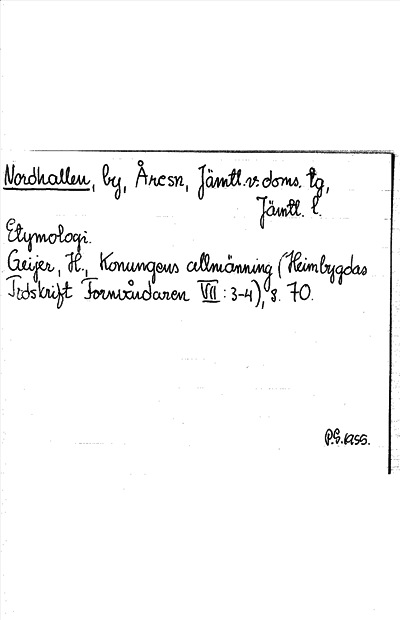 Nordhallen, by, Åresn, Jämtl. v. doms. tg,
Jämtl. l.
Etymologi.
Geijer, H., Konungens allmänning (Heimbygdas
Tidskrift Fornvårdaren VII : 3-4), s. 70.
P.G. 1955.